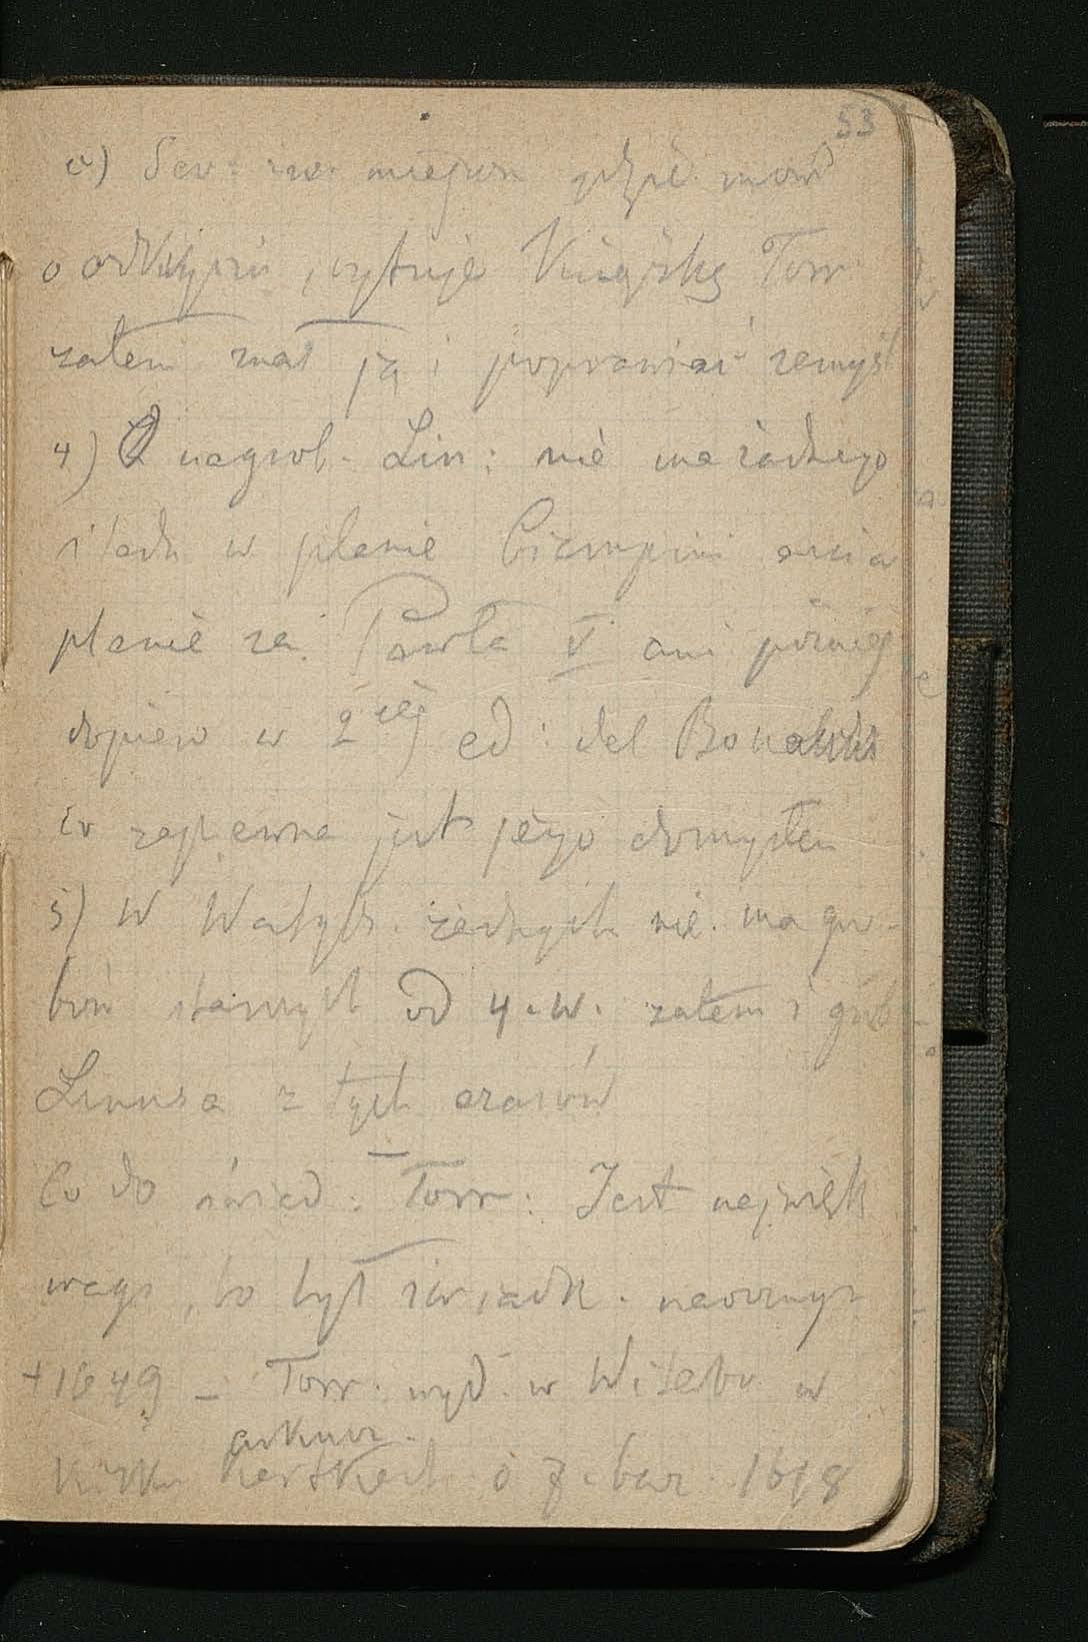 53
c) Sev: na miejscu gdzie mówi
o odkryciu, cytuje Książkę Torr
zatem znał ją i poprawiać zamyśl
4) O nagrob. Lin: nie ma żadnego
śladu w planie Ciampini ani a
planie za Pawła V ani później
dopiero w 2iéj ed: del
co zapewne jest jego domysłem
5) W Watyk. żadnych nie ma gro-
bów starszych od 4.w. zatem i grób
Linusa z tych czasów
Co do świad: Torr: Jest najwięk
wagi, bo był świadk. naocznym
+1649 – Torr. wyd. w w
arkusz.
Kilku kartkach o z. bar. 1618